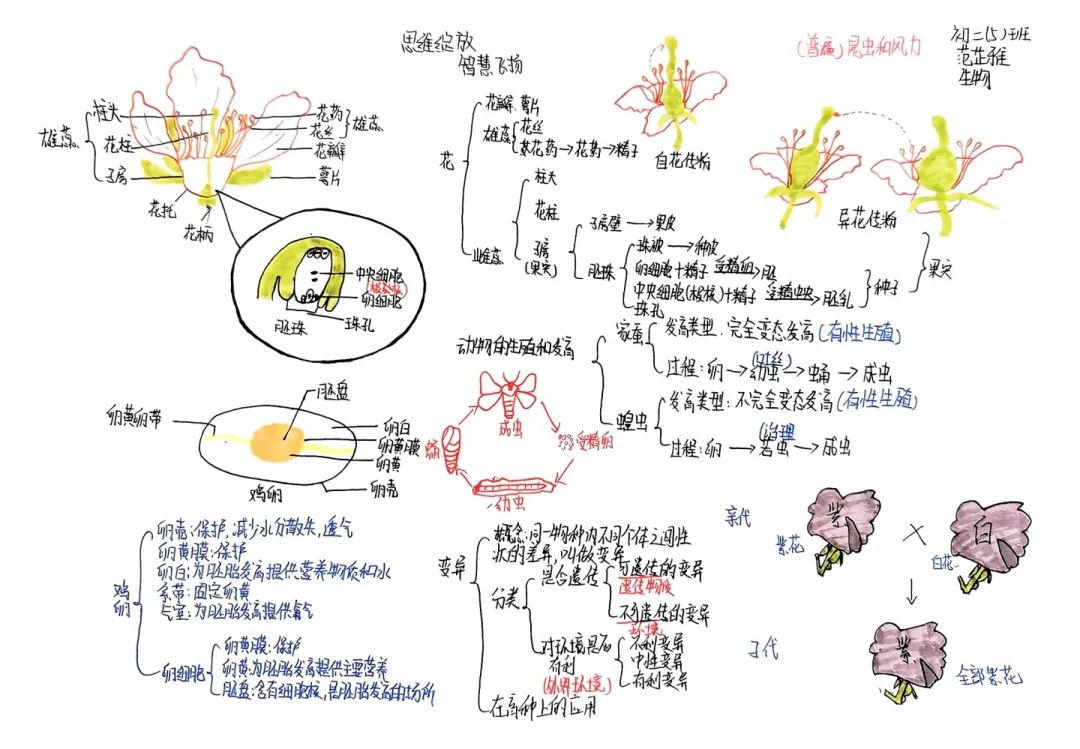 思维绽放
智慧飞扬
(普遍)昆虫和风力
初二(5)班
范芷雅
生物
雄蕊
柱头
花柱
子房
花托
花柄
花药
花丝
雄蕊
花瓣
萼片
中央细胞
(极核)
卵细胞
胚珠
珠孔
花
花瓣、萼片
雄蕊
花丝
花药→花药→精子
雌蕊
柱头
花柱
子房
(果实)
子房壁→果皮
胚珠
珠被→种皮
卵细胞+精子 受精卵→胚
中央细胞(极核)+精子 受精→胚乳
珠孔
种子
果实
自花传粉
异花传粉
动物的生殖和发育
家蚕
发育类型:完全变态发育(有性生殖)
(吐丝)
过程:卵→幼虫→蛹→成虫
蝗虫
发育类型:不完全变态发育(有性生殖)
(治理)
过程:卵→若虫→成虫
成虫
受精卵
幼虫
蛹
胚盘
卵黄卵带
卵白
卵黄膜
卵黄
卵壳
鸡卵
鸡卵
卵壳:保护,减少水分散失,透气
卵黄膜:保护
卵白:为胚胎发育提供营养物质和水
系带:固定卵黄
气室:为胚胎发育提供氧气
卵细胞
卵黄膜:保护
卵黄:为胚胎发育提供主要营养
胚盘:含有细胞核,是胚胎发育的场所
变异
概念:同一物种内不同个体之间性
状的差异,叫做变异
分类
是否遗传
可遗传的变异
遗传物质
不可遗传的变异
环境
对环境是否
有利
(外界环境)
不利变异
中性变异
有利变异
在育种上的应用
亲代
紫花
紫
×
白
白花
子代
紫
全部紫花